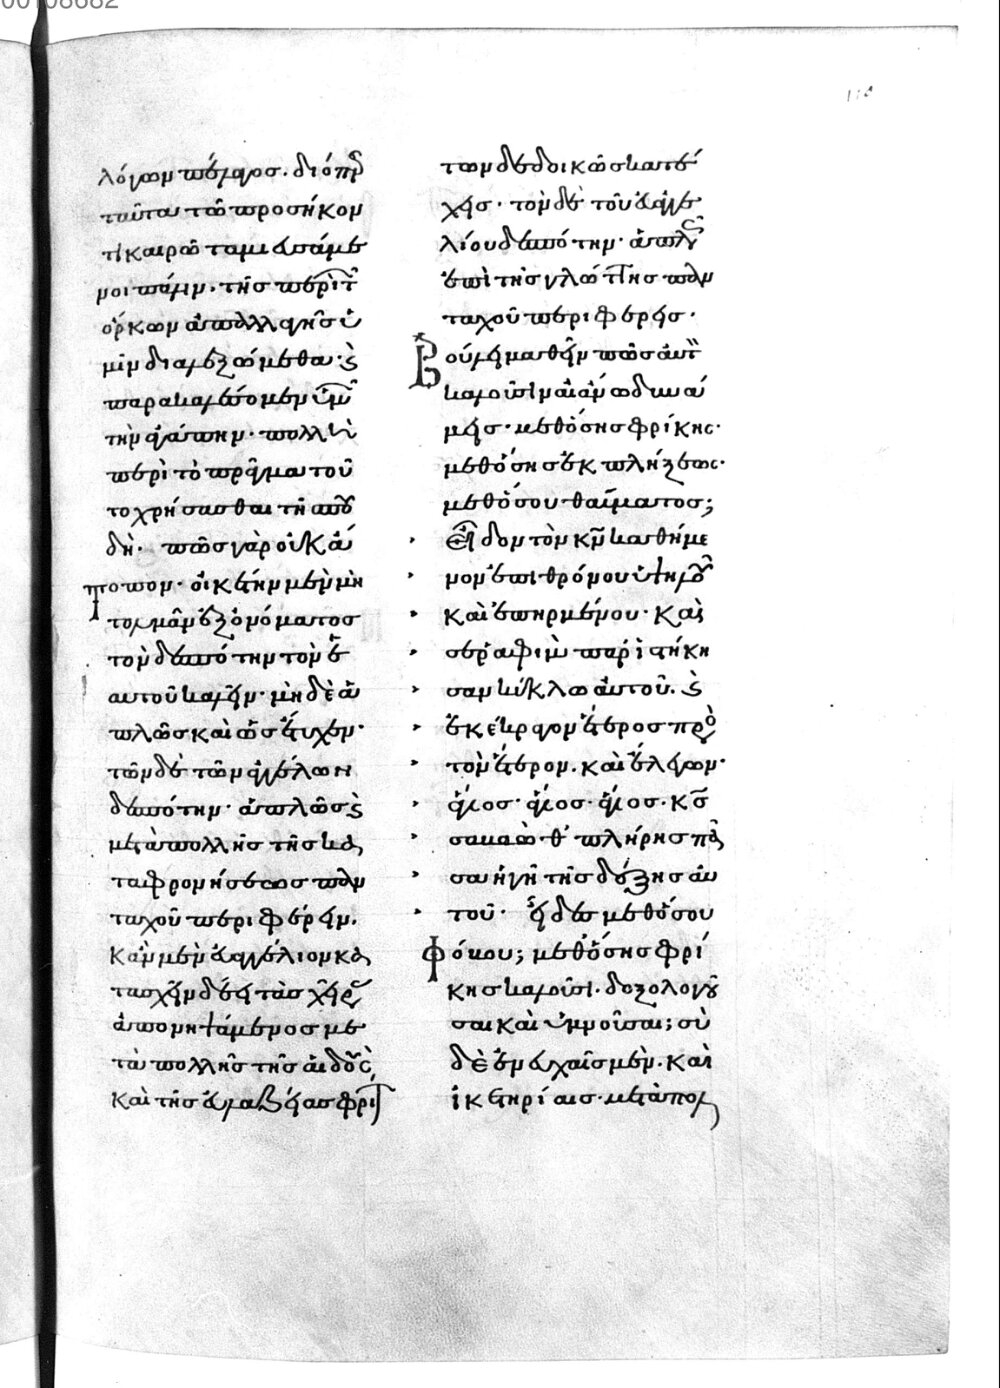 00108682
λόγων πέλαγος. διόπερ
ταῦτα τῶ προσήκον
τι καιρῶ ταμιευσάμε
νοι πάλιν. τῆς περὶ τῶν
ὅρκων ἀπαλλαγῆς ὑ
μῖν διαλεξώμεθα· καὶ
παρακαλέσομεν ὑμῶν
τὴν ἀγάπην. πολλῆ
περὶ τὸ πρᾶγμα τοῦ
το χρήσασθαι τῆ σπου
δῆ. πῶς γὰρ οὐκ ἄ
τοπον· οἰκέτην μὲν μὴ
τολμᾶν ἐξ ὀνόματος
τὸν δεσπότην τὸν ἑ
αυτοῦ καλεῖν· μηδὲ ἁ
πλῶς καὶ ὡς ἔτυχεν·
τῶν δὲ τῶν ἀγγέλων
δεσπότην· ἁπλῶς καὶ
μετὰ πολλῆς τῆς κα
ταφρονήσεως παν
ταχοῦ περιφέρειν.
Κἂν μὲν εὐαγγέλιον κα
τασχεῖν δέη τὰς χεῖρας
ἀπονιψάμενος με
τὰ πολλῆς τῆς αἰδοῦς
καὶ τῆς εὐλαβείας φρίτ
των δεδοικὼς κατέ
χεις· τὸν δὲ τοῦ εὐαγγε
λίου δεσπότην· ἁπλῶς
ἐπὶ τῆς γλώττης παν
ταχοῦ περιφέρεις·
Βούλει μαθεῖν πῶς αὐτὸν
καλοῦσιν αἱ ἄνω δυνά
μεις· μεθ' ὅσης φρίκης·
μεθ' ὅσης ἐκπλήξεως·
μεθ' ὅσου θαύματος;
Εἶδον τὸν κν καθήμε
νον ἐπὶ θρόνου ὑψηλοῦ
καὶ ἐπηρμένου· καὶ
σεραφὶμ παρειστήκει
σαν κύκλω αὐτοῦ. καὶ
ἐκέκραγον ἕτερος πρὸς
τὸν ἕτερον. καὶ ἔλεγον·
ἅγιος· ἅγιος· ἅγιος· κς
σαβαώθ· πλήρης πᾶ
σα ἡ γῆ τῆς δόξης αὐ
τοῦ· εἶδες μεθ' ὅσου
Φόβου; μεθ' ὅσης φρί
κης καλοῦσι. δοξολογοῦ
σαι καὶ ὑμνοῦσαι; σὺ
δὲ ἐν εὐχαῖς μὲν. καὶ
ἱκετηρίαις. μετὰ πολ